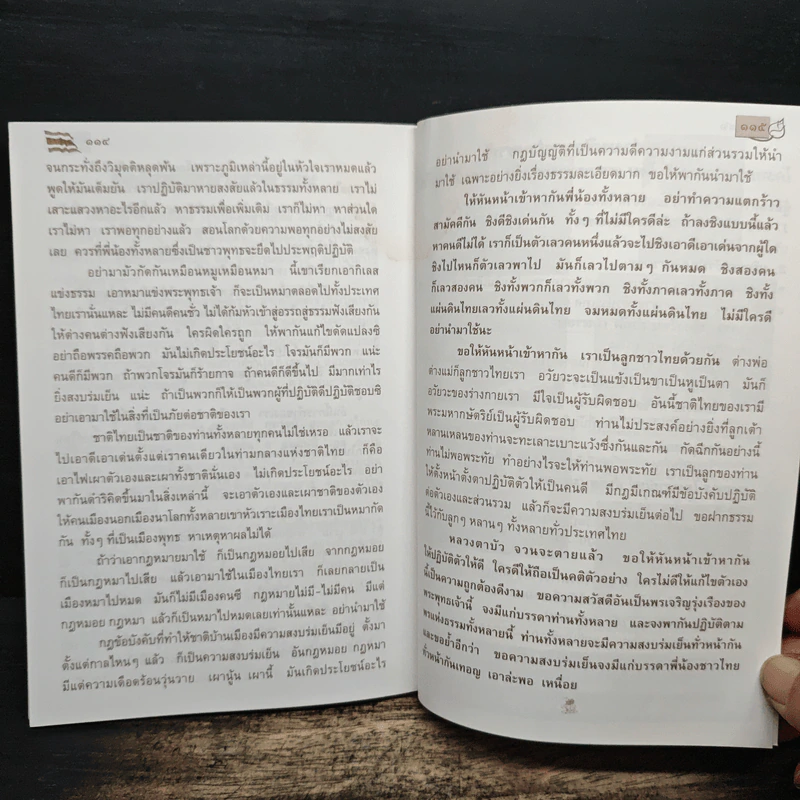 ๑๑๔
จนกระทั่งถึงวิมุตติหลุดพ้น เพราะภูมิเหล่านี้อยู่ในหัวใจเราหมดแล้ว
พูดให้มันเต็มยัน เราปฏิบัติมาหายสงสัยแล้วในธรรมทั้งหลาย เราไม่
เสาะแสวงหาอะไรอีกแล้ว หาธรรมเพื่อเพิ่มเติม เราก็ไม่หา หาส่วนใด
เราไม่หา เราพอทุกอย่างแล้ว สอนโลกด้วยความพอทุกอย่างไม่สงสัย
เลย ควรที่พี่น้องทั้งหลายซึ่งเป็นชาวพุทธจะยึดไปประพฤติปฏิบัติ
อย่ามามัวกัดกันเหมือนหมูเหมือนหมา นี้เขาเรียกเอากิเลส
แข่งธรรม เอาหมาแข่งพระพุทธเจ้า ก็จะเป็นหมาตลอดไปทั้งประเทศ
ไทยเรานั่นแหละ ไม่มีคนดีคนชั่ว ไม่ได้ก้มหัวเข้าสู่อรรถสู่ธรรมฟังเสียงกัน
ให้ต่างคนต่างฟังเสียงกัน ใครผิดใครถูก ให้พากันแก้ไขดัดแปลงซิ
อย่าถือพรรคถือพวก มันไม่เกิดประโยชน์อะไร โจรมันก็มีพวก แน่ะ
คนดีก็มีพวก ถ้าพวกโจรมันก็ร้ายกาจ ถ้าคนดีก็ดีขึ้นไป มีมากเท่าไร
ยิ่งส่งบร่มเย็น แน่ะ ถ้าเป็นพวกก็ให้เป็นพวกผู้ที่ปฏิบัติดีปฏิบัติชอบซิ
อย่าเอามาใช้ในสิ่งที่เป็นภัยต่อชาติของเรา
ชาติไทยเป็นชาติของท่านทั้งหลายทุกคนไม่ใช่เหรอ แล้วเราจะ
ไปเอาดีเอาเด่นตั้งแต่เราคนเดียวในท่ามกลางแห่งชาติไทย ก็คือ
เอาไฟเผาตัวเองและเผาทั้งชาตินั่นเอง ไม่เกิดประโยชน์อะไร อย่า
พากันดำริคิดขึ้นมาในสิ่งเหล่านี้ จะเอาตัวเองและเผาชาติของตัวเอง
ให้คนเมืองนอกเมืองนาโลกทั้งหลายเขาหัวเราะเมืองไทยเราเป็นหมากัด
กัน ทั้งๆ ที่เป็นเมืองพุทธ หาเหตุหาผลไม่ได้
ถ้าว่าเอากฎหมายมาใช้ ก็เป็นกฎหมอยไปเสีย จากกฎหมอย
ก็เป็นกฎหมาไปเสีย แล้วเอามาใช้ในเมืองไทยเรา ก็เลยกลายเป็น
เมืองหมาไปหมด มันก็ไม่มีเมืองคนซี กฎหมายไม่มี-ไม่มีคน มีแต่
กฎหมอย กฎหมา แล้วก็เป็นหมาไปหมดเลยเท่านั้นแหละ อย่านำมาใช้
กฎข้อบังคับที่ทำให้ชาติบ้านเมืองมีความสงบร่มเย็นมีอยู่ ตั้งมา
ตั้งแต่กาลไหนๆ แล้ว ก็เป็นความสงบร่มเย็น อันกฎหมอย กฎหมา
มีแต่ความเดือดร้อนวุ่นวาย เผานู้น เผานี้ มันเกิดประโยชน์อะไร
๑๑๕
อย่านำมาใช้ กฎบัญญัติที่เป็นความดีความงามแก่ส่วนรวมให้นำ
มาใช้ เฉพาะอย่างยิ่งเรื่องธรรมละเอียดมาก ขอให้พากันนำมาใช้
ให้หันหน้าเข้าหากันพี่น้องทั้งหลาย อย่าทำความแตกร้าว
สามัคคีกัน ชิงดีชิงเด่นกัน ทั้งๆ ที่ไม่มีใครดีล่ะ ถ้าลงชิงแบบนี้แล้ว
หาคนดีไม่ได้ เราก็เป็นตัวเลวคนหนึ่งแล้วจะไปชิงเอาดีเอาเด่นจากผู้ใด
ชิงไปไหนก็ตัวเลวพาไป มันก็เลวไปตามๆ กันหมด ชิงสองคน
ก็เลวสองคน ชิงทั้งพวกก็เลวทั้งพวก ชิงทั้งภาคเลวทั้งภาค ชิงทั้ง
แผ่นดินไทยเลวทั้งแผ่นดินไทย จมหมดทั้งแผ่นดินไทย ไม่มีใครดี
อย่านำมาใช้นะ
ขอให้หันหน้าเข้าหากัน เราเป็นลูกชาวไทยด้วยกัน ต่างพ่อ
ต่างแม่ก็ลูกชาวไทยเรา อวัยวะจะเป็นแข้งเป็นขาเป็นหูเป็นตา มันก็
อวัยวะของร่างกายเรา มีใจเป็นผู้รับผิดชอบ อันนี้ชาติไทยของเรามี
พระมหากษัตริย์เป็นผู้รับผิดชอบ ท่านไม่ประสงค์อย่างยิ่งที่ลูกเต้า
หลานเหลนของท่านจะทะเลาะเบาะแว้งซึ่งกันและกัน กัดฉีกกันอย่างนี้
ท่านไม่พอพระทัย ทำอย่างไรจะให้ท่านพอพระทัย เราเป็นลูกของท่าน
ให้ตั้งหน้าตั้งตาปฏิบัติตัวให้เป็นคนดี มีกฎมีเกณฑ์มีข้อบังคับปฏิบัติ
ต่อตัวเองและส่วนรวม แล้วก็จะมีความสงบร่มเย็นต่อไป ขอฝากธรรม
นี้ไว้กับลูกๆ หลานๆ ทั้งหลายทั่วประเทศไทย
หลวงตาบัว จวนจะตายแล้ว ขอให้หันหน้าเข้าหากัน
ให้ปฏิบัติตัวให้ดี ใครดีให้ถือเป็นคติตัวอย่าง ใครไม่ดีให้แก้ไขตัวเอง
นี่เป็นความถูกต้องดีงาม ขอความสวัสดีอันเป็นพรเจริญรุ่งเรืองของ
พระพุทธเจ้านี้ จงมีแก่บรรดาท่านทั้งหลาย และจงพากันปฏิบัติตาม
พรแห่งธรรมทั้งหลายนี้ ท่านทั้งหลายจะมีความสงบร่มเย็นทั่วหน้ากัน
และขอย้ำอีกว่า ขอความสงบร่มเย็นจงมีแก่บรรดาพี่น้องชาวไทย
ทั่วหน้ากันเทอญ เอาล่ะพอ เหนื่อย